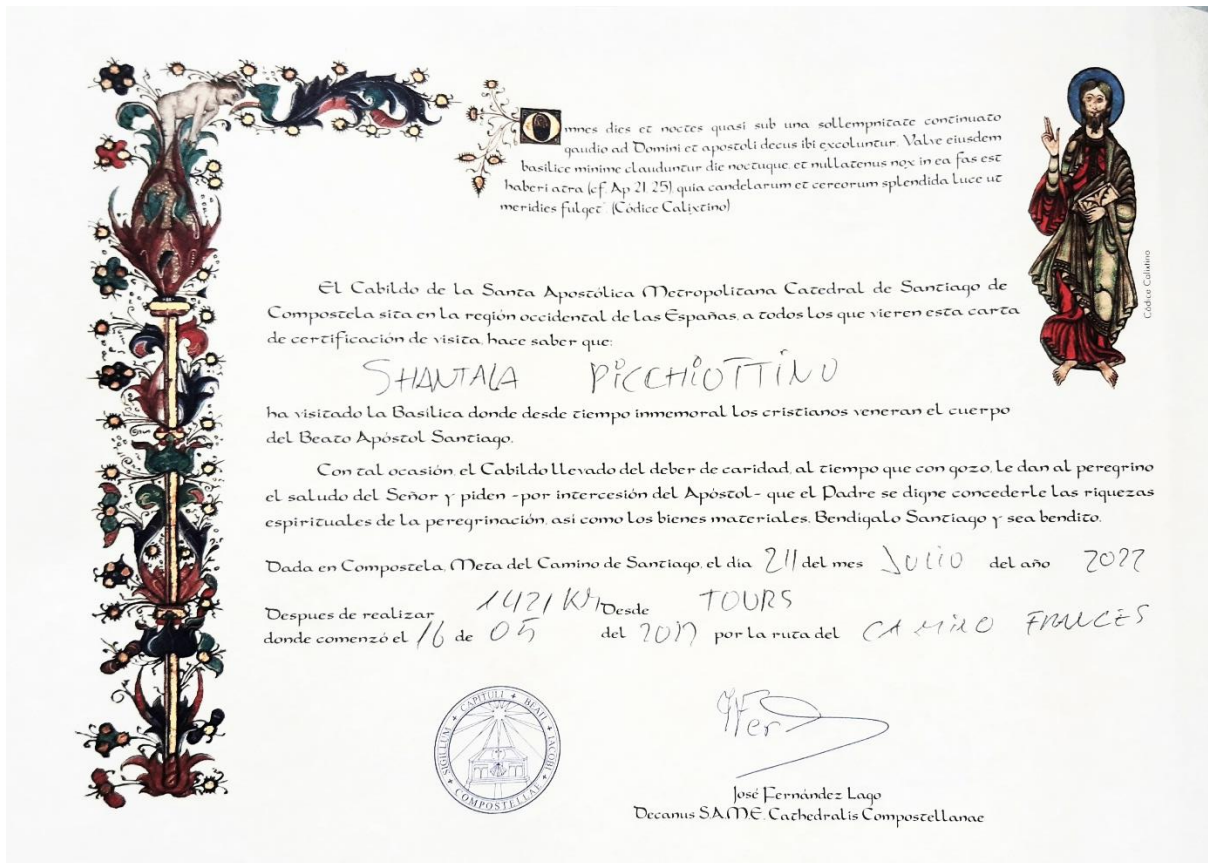 Omnes dies et noctes quasi sub una sollempnitate continuato
gaudio ad Domini et apostoli decus ibi excoluntur. Valve eiusdem
basilice minime clauduntur die noctuque, et nullatenus nox in ea fas est
haberi atra (cf. Ap 21, 25), quia candelarum et cereorum splendida luce ut
meridies fulget" (Códice Calixtino)
Códice Calixtino
El Cabildo de la Santa Apostólica Metropolitana Catedral de Santiago de
Compostela sita en la región occidental de las Españas, a todos los que vieren esta carta
de certificación de visita, hace saber que:
SHANTALA PICCHIOTTINO
ha visitado la Basílica donde desde tiempo inmemorial los cristianos veneran el cuerpo
del Beato Apóstol Santiago.
Con tal ocasión, el Cabildo llevado del deber de caridad, al tiempo que con gozo, le dan al peregrino
el saludo del Señor y piden -por intercesión del Apóstol- que el Padre se digne concederle las riquezas
espirituales de la peregrinación, así como los bienes materiales. Bendígalo Santiago y sea bendito.
Dada en Compostela, Meta del Camino de Santiago, el día del mes Julio del año 2022
Despues de realizar 1421 Km Desde TOURS
donde comenzó el 16 de 05 del por la ruta del CAMINO FRANCES
SIGILLUM + CAPITULI + BEATI + IACOBI + COMPOSTELLAE +
José Fernández Lago
Decanus S.A.M.E. Cathedralis Compostellanae